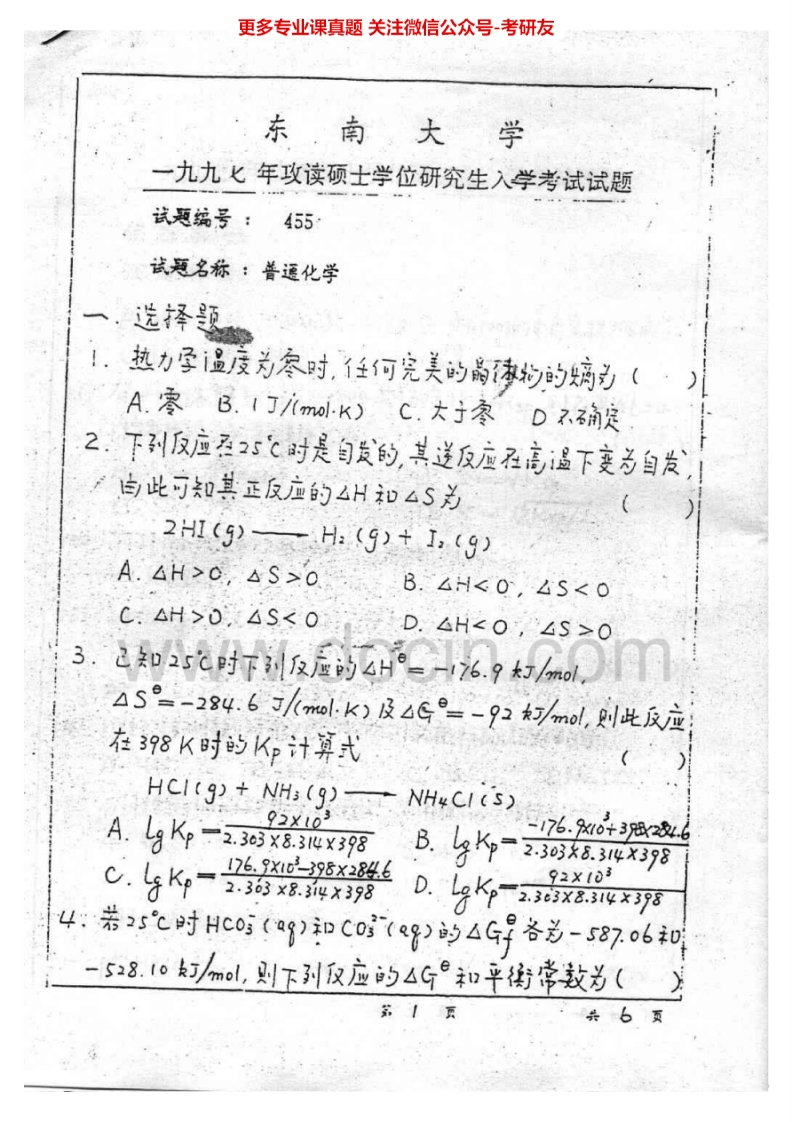 更多专业课真题 关注微信公众号-考研友
东 南 大 学
一九九七年攻读硕士学位研究生入学考试试题
试题编号： 455
试题名称：普通化学
一 选择题
1. 热力学温度为零时,任何完美的晶体物的熵为( )
A. 零 B. 1 J/(mol·K) C. 大于零 D 不确定
2. 下列反应在25℃时是自发的,其逆反应在高温下变为自发,
由此可知其正反应的△H和△S为 ( )
2HI(g) —— H₂(g) + I₂(g)
A. △H>0, △S>0 B. △H<0, △S<0
C. △H>0, △S<0 D. △H<0, △S>0
www.docin.com
3. 已知25℃时下列反应的△H^⊖=-176.9 kJ/mol,
△S^⊖=-284.6 J/(mol·K)及△G^⊖=-92 kJ/mol,则此反应
在398K时的Kp计算式 ( )
HCl(g) + NH₃(g) —— NH₄Cl(s)
A. lgKp = 92×10³/2.303×8.314×398 B. lgKp = -176.9×10³+398×284.6/2.303×8.314×398
C. lgKp = 176.9×10³-398×284.6/2.303×8.314×398 D. lgKp = 92×10³/2.303×8.314×398
4. 若25℃时HCO₃⁻(aq)和CO₃²⁻(aq)的△Gf^⊖各为-587.06和
-528.10 kJ/mol,则下列反应的△G^⊖和平衡常数为( )
第 1 页 共 6 页